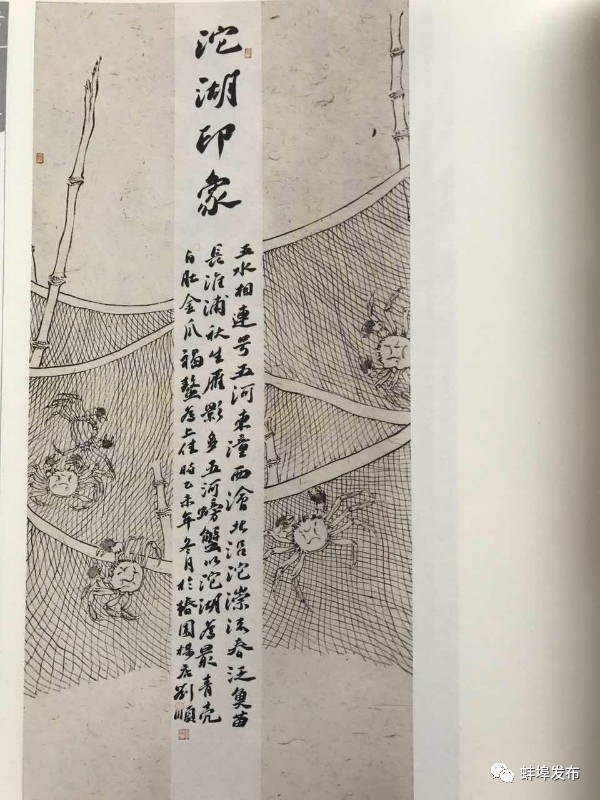 沱湖印象
五水相连号五河东潼西澮北沿沱漴流春泛鱼苗
長淮浦秋生雁影多五河螃蟹以沱湖为最青壳
白肚金爪福螯为上佳時乙未年冬月於椿園楊店劉順
蚌埠发布